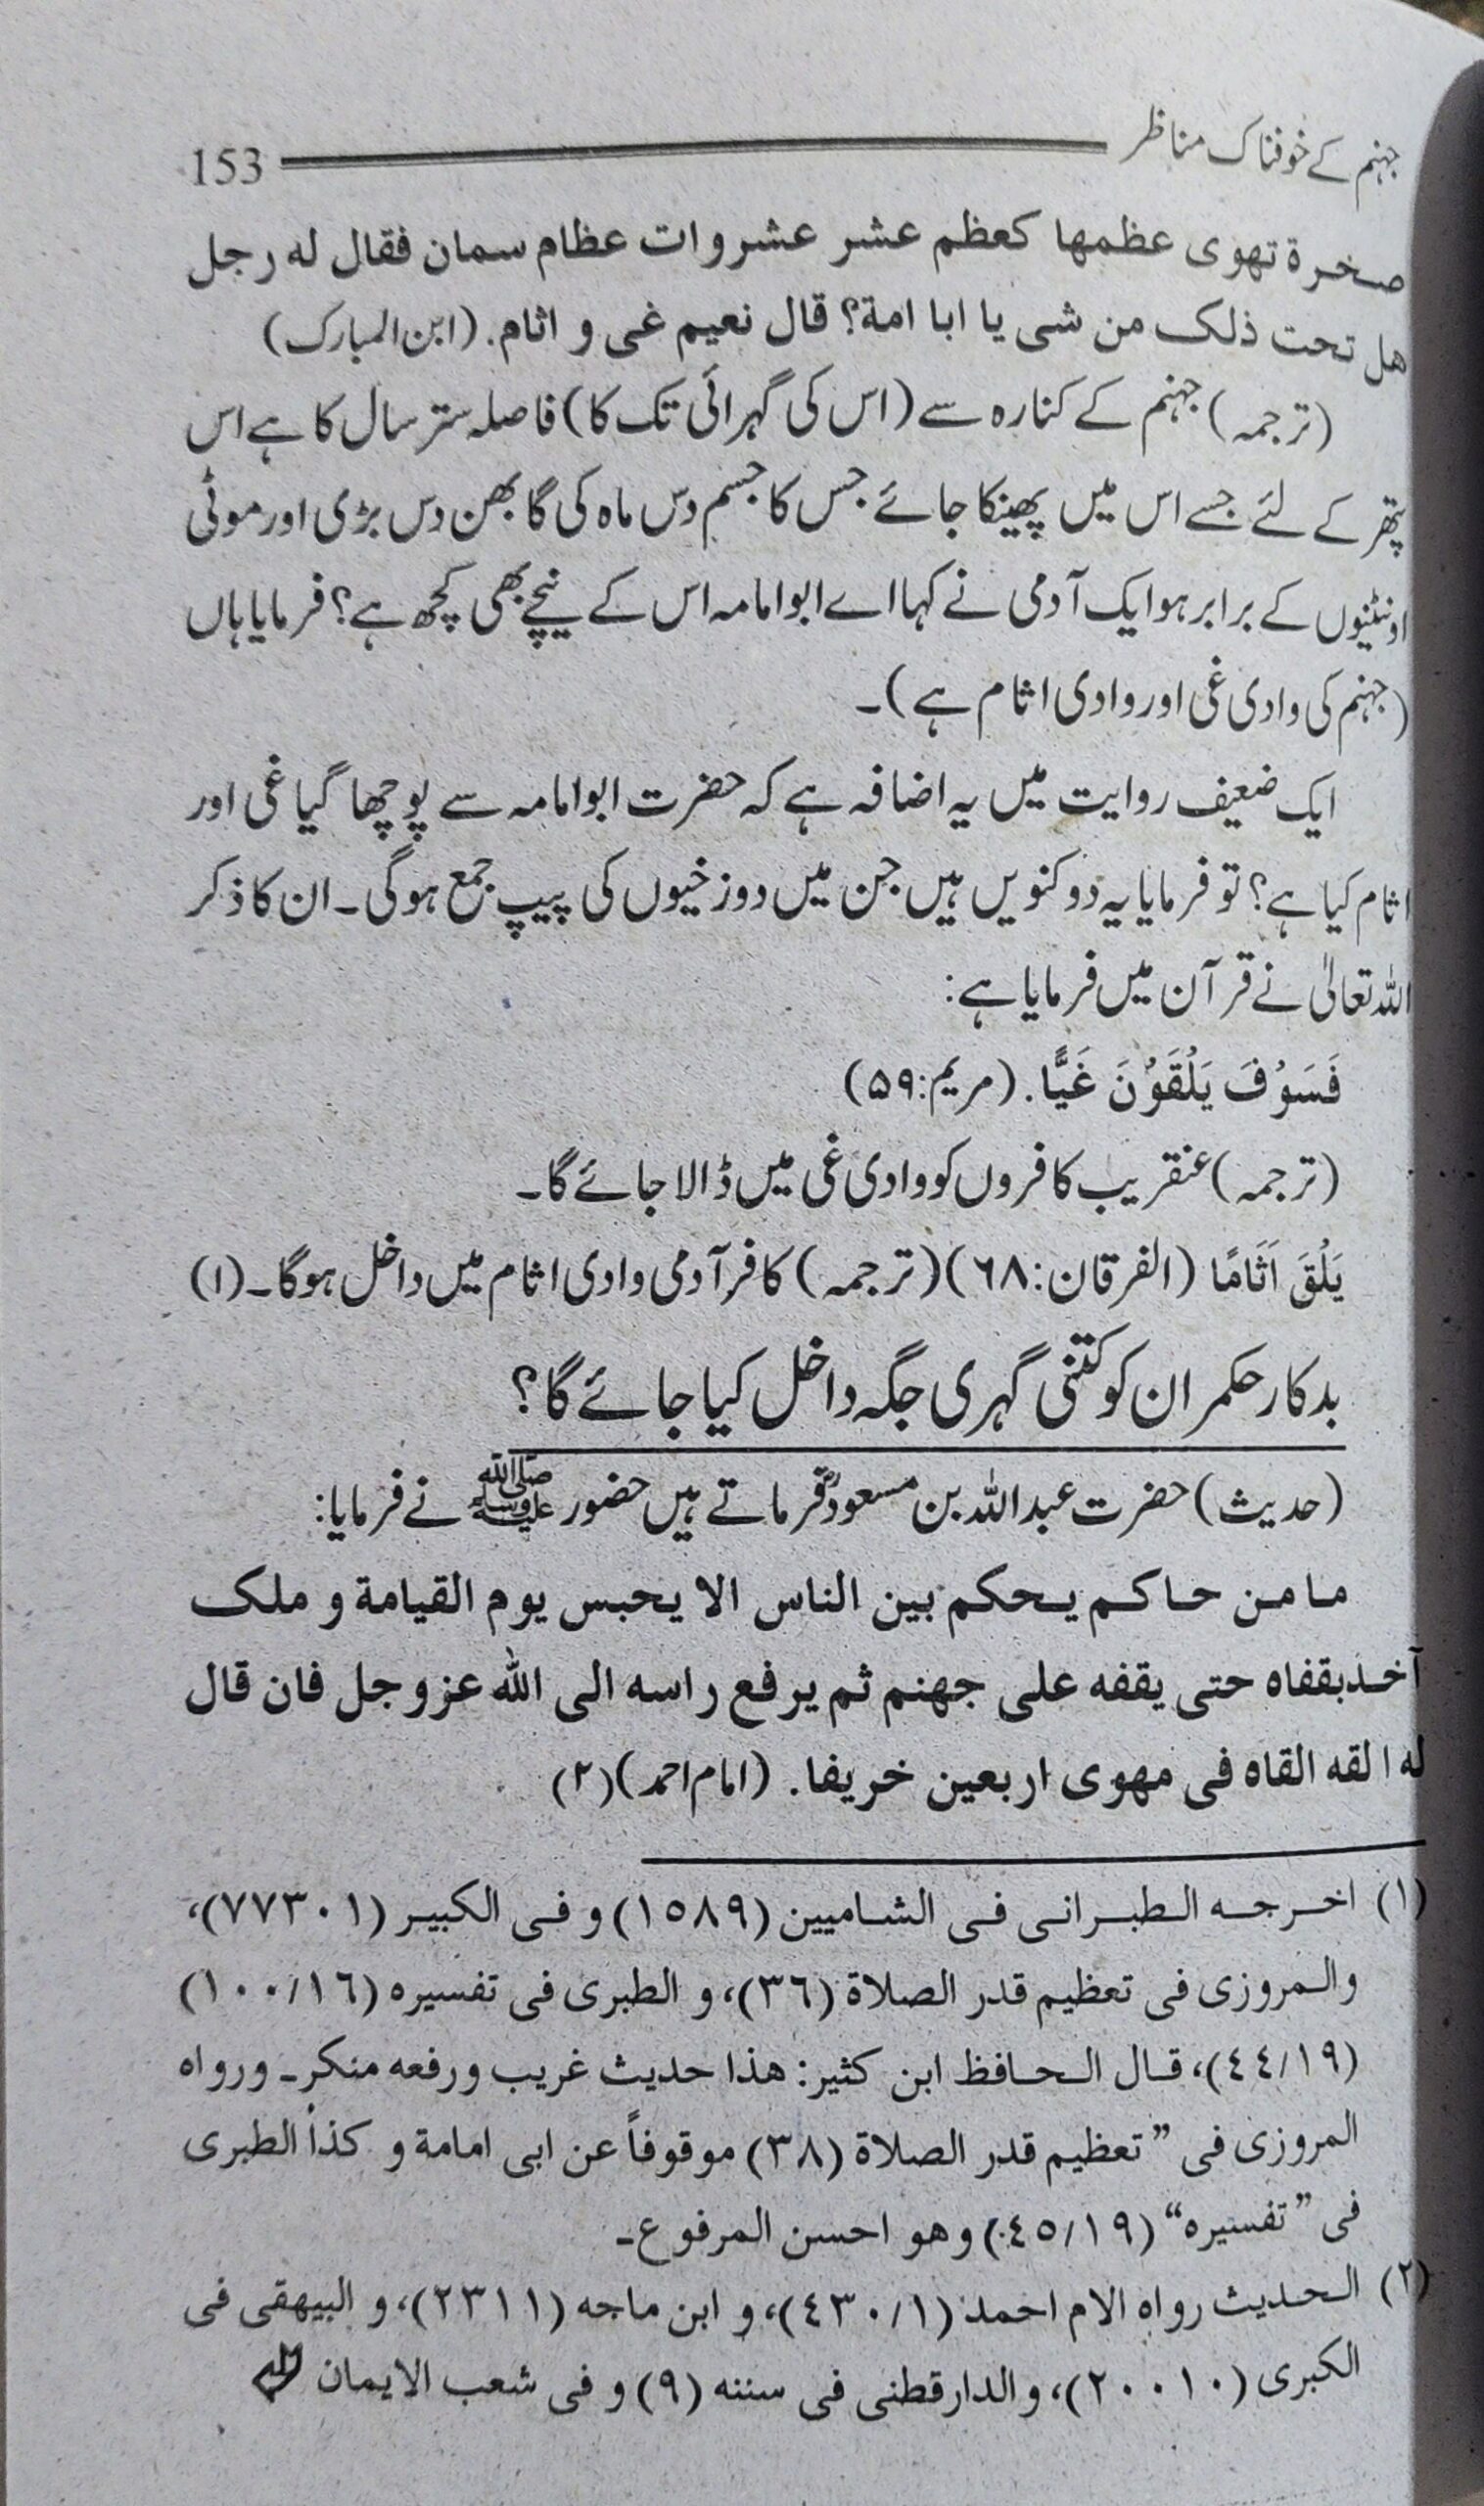 جہنم کے خوفناک مناظر 153
صخرة تهوى عظمها كعظم عشر عشروات عظام سمان فقال له رجل
هل تحت ذلک من شی یا ابا امة؟ قال نعيم غى و اثام. (ابن المبارک)
(ترجمہ) جہنم کے کنارہ سے (اس کی گہرائی تک کا) فاصلہ ستر سال کا ہے اس
پتھر کے لئے جسے اس میں پھینکا جائے جس کا جسم دس ماہ کی گابھن دس بڑی اور موٹی
اونٹنیوں کے برابر ہو ایک آدمی نے کہا اے ابوامامہ اس کے نیچے بھی کچھ ہے؟ فرمایا ہاں
(جہنم کی وادی غی اور وادی اثام ہے)۔
ایک ضعیف روایت میں یہ اضافہ ہے کہ حضرت ابوامامہ سے پوچھا گیا غی اور
اثام کیا ہے؟ تو فرمایا یہ دو کنویں ہیں جن میں دوزخیوں کی پیپ جمع ہوگی۔ ان کا ذکر
اللہ تعالیٰ نے قرآن میں فرمایا ہے:
فَسَوْفَ يَلْقَوْنَ غَيًّا. (مریم:۵۹)
(ترجمہ) عنقریب کافروں کو وادی غی میں ڈالا جائے گا۔
يَلْقَ اَثَامًا (الفرقان:۶۸) (ترجمہ) کافر آدمی وادی اثام میں داخل ہوگا۔(۱)
بدکار حکمران کو کتنی گہری جگہ داخل کیا جائے گا؟
(حدیث) حضرت عبداللہ بن مسعودؓ فرماتے ہیں حضور ﷺ نے فرمایا:
مامن حاكم يحكم بين الناس الا يحبس يوم القيامة و ملک
آخذبقفاه حتى يقفه على جهنم ثم يرفع راسه الى الله عزوجل فان قال
له القه القاه فى مهوى اربعين خريفا. (امام احمد)(۲)
(۱) اخرجه الطبرانى فى الشاميين (۱۵۸۹) و فى الكبير (۷۷۳۰۱)،
والمروزى فى تعظيم قدر الصلاة (۳٦)، و الطبرى فى تفسيره (۱۰۰/۱٦)
(٤٤/۱۹)، قال الحافظ ابن كثير: هذا حديث غريب ورفعه منكر۔ ورواه
المروزى فى ”تعظيم قدر الصلاة (۳۸) موقوفاً عن ابى امامة و كذا الطبرى
فى ”تفسيره“ (٤٥/۱۹) وهو احسن المرفوع۔
(۲) الحديث رواه الام احمد (٤۳۰/۱)، و ابن ماجه (۲۳۱۱)، و البيهقى فى
الكبرى (۲۰۰۱۰)، والدارقطنى فى سننه (۹) و فى شعب الايمان